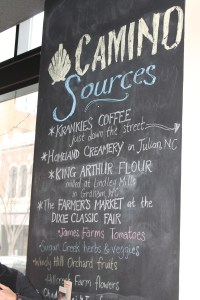 CAMINO
Sources
*KRANKIES COFFEE
just down the street
*HOMELAND CREAMERY in Julian, NC
*KING ARTHUR FLOUR
milled at Lindley Mills
in Graham, NC
*THE FARMER'S MARKET at the
DIXIE CLASSIC FAIR
-James Farms Tomatoes
-Sugar Creek herbs & veggies
Hill Orchard fruits
Farm flowers